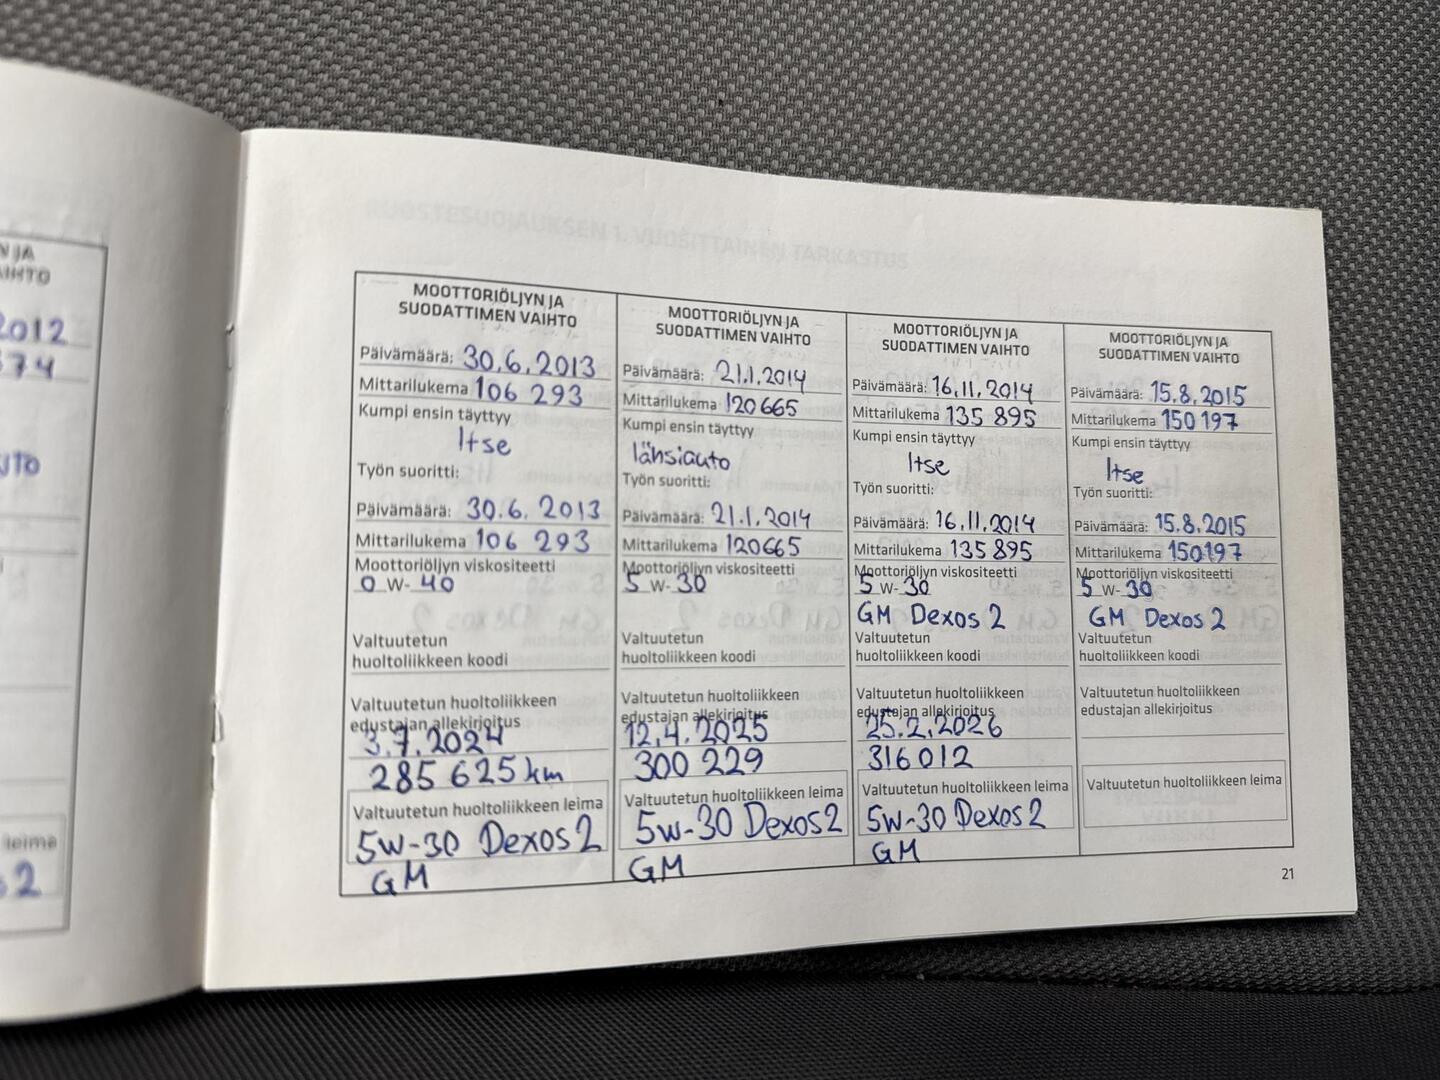 N JA
AIHTO
2012
374
leima
2
MOOTTORIÖLJYN JA
SUODATTIMEN VAIHTO
Päivämäärä: 30.6.2013
Mittarilukema 106 293
Kumpi ensin täyttyy
Itse
Työn suoritti:
Päivämäärä: 30.6.2013
Mittarilukema 106 293
Moottoriöljyn viskositeetti
0 W- 40
Valtuutetun
huoltoliikkeen koodi
Valtuutetun huoltoliikkeen
edustajan allekirjoitus
3.7.2024
285 625 km
Valtuutetun huoltoliikkeen leima
5W-30 Dexos2
GM
MOOTTORIÖLJYN JA
SUODATTIMEN VAIHTO
Päivämäärä: 21.1.2014
Mittarilukema 120665
Kumpi ensin täyttyy
länsiauto
Työn suoritti:
Päivämäärä: 21.1.2014
Mittarilukema 120665
Moottoriöljyn viskositeetti
5 W- 30
Valtuutetun
huoltoliikkeen koodi
Valtuutetun huoltoliikkeen
edustajan allekirjoitus
12.4.2025
300 229
Valtuutetun huoltoliikkeen leima
5w-30 Dexos2
GM
MOOTTORIÖLJYN JA
SUODATTIMEN VAIHTO
Päivämäärä: 16.11.2014
Mittarilukema 135 895
Kumpi ensin täyttyy
Itse
Työn suoritti:
Päivämäärä: 16.11.2014
Mittarilukema 135 895
Moottoriöljyn viskositeetti
5 W- 30
GM Dexos 2
Valtuutetun
huoltoliikkeen koodi
Valtuutetun huoltoliikkeen
edustajan allekirjoitus
25.2.2026
316 012
Valtuutetun huoltoliikkeen leima
5w-30 Dexos2
GM
MOOTTORIÖLJYN JA
SUODATTIMEN VAIHTO
Päivämäärä: 15.8.2015
Mittarilukema 150 197
Kumpi ensin täyttyy
Itse
Työn suoritti:
Päivämäärä: 15.8.2015
Mittarilukema 150197
Moottoriöljyn viskositeetti
5 W- 30
GM Dexos 2
Valtuutetun
huoltoliikkeen koodi
Valtuutetun huoltoliikkeen
edustajan allekirjoitus
Valtuutetun huoltoliikkeen leima
21